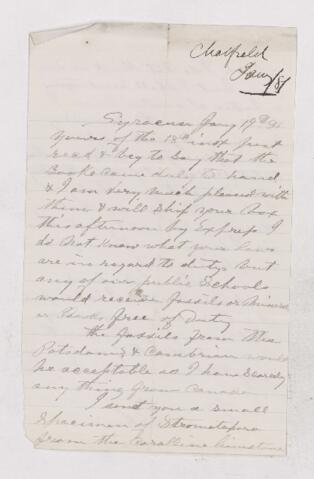 Chatfield
Jany/81
Syracuse Jany 19th 81
Yours of the 18th inst just
recd & beg to say that the
Books came duly to hand
& I am very much pleased with
them & will ship your box
this afternoon by Express I
do not know what your laws
are in regard to duty but
any of our public Schools
would receive Fossils or Minerals
or Books free of Duty
The Fossils from the
Potsdam & Cambrian would
be acceptable as I have scarcely
any thing from Canada
I send you a small
Specimen of Stromatopora
from the Coralline limestone